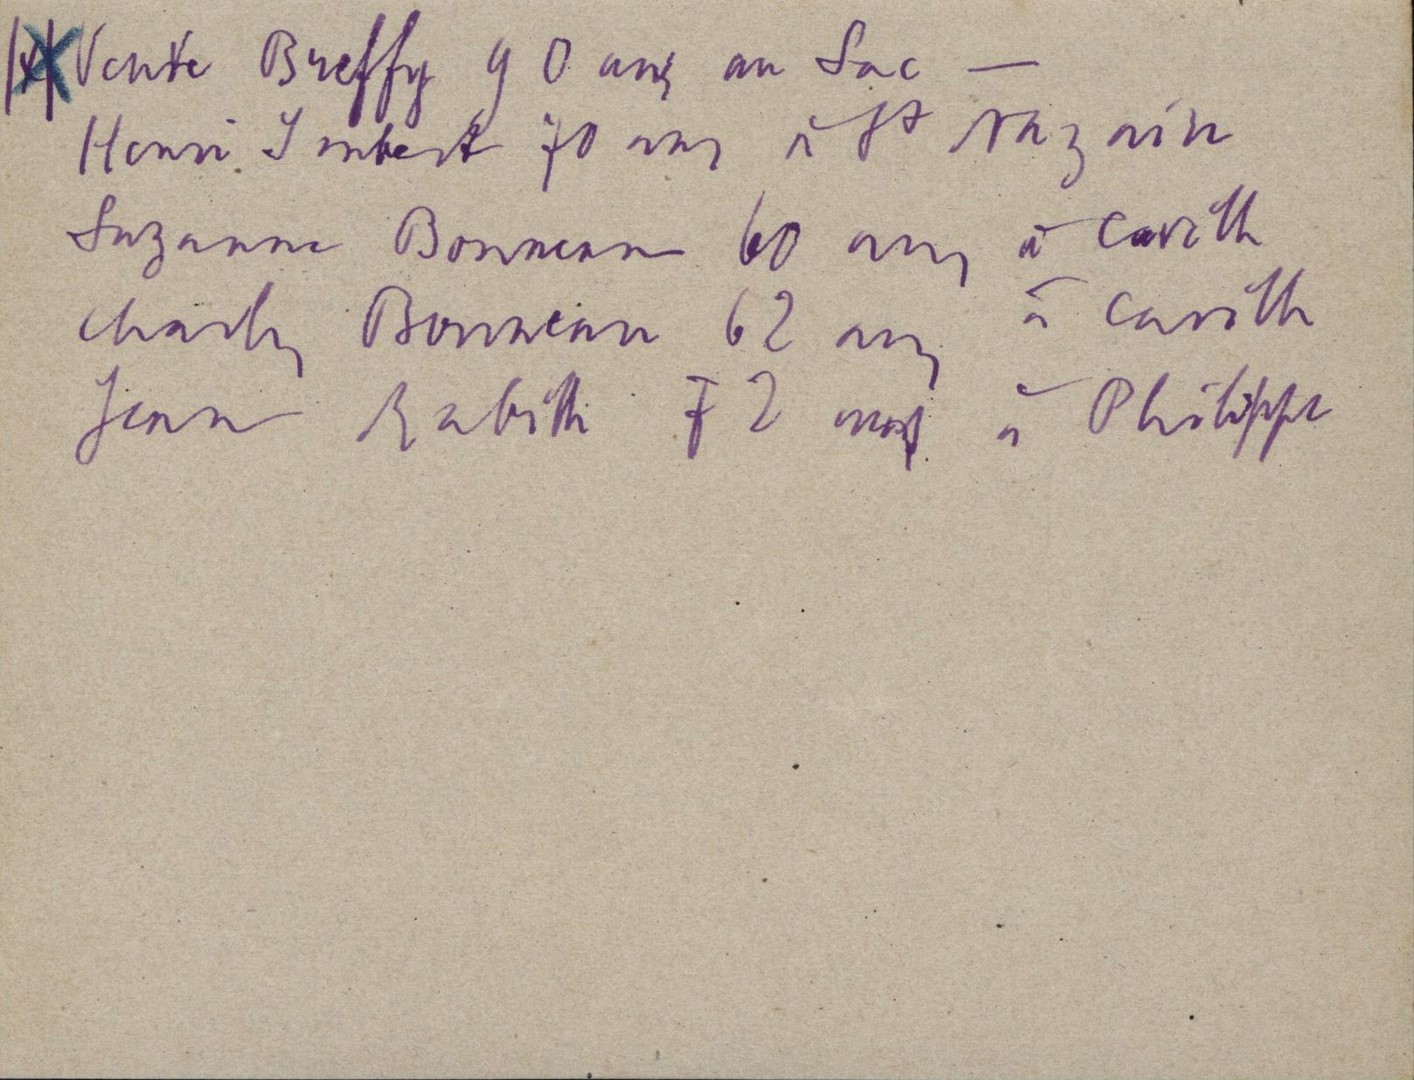 Vente Breffy 90 ans au Lac —
Henri Imbert 70 ans à St Nazaire
Suzanne Bonneau 60 ans à
Charles Bonneau 62 ans à
72 ans à Philippe